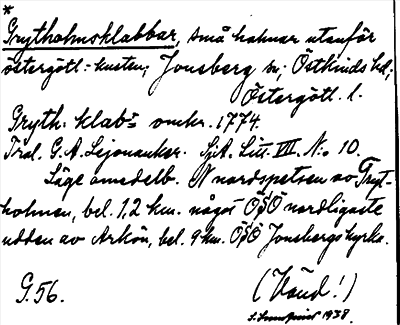 *
Grytholmsklabbar, små holmar utanför
östergötl.-kusten; Jonsberg sn; Östkinds hd;
Östergötl. l.
Gryth. klabr omkr. 1774.
Tidl. G.A. Lejonancker. SjA. Litt. VII. No 10.
Läge omedelb. N nordspetsen av Gryt-
holmen, bel. 1,2 km. något OSO nordligaste
udden av Arkön, bel. 9 km. OSO Jonsbergs kyrka.
G. 56.
(Vänd!)
1938.